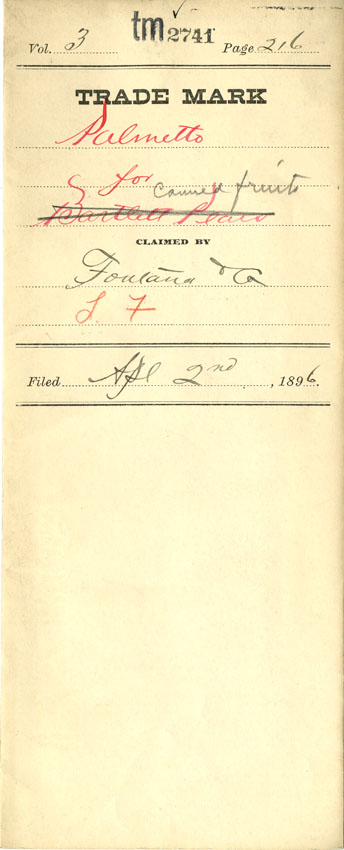 ✓
tm 2741
Vol. 3 Page 216
TRADE MARK
Palmetto
for canned fruits
Bartlett Pears
CLAIMED BY
Fontana & Co
S F
Filed Apl 2nd, 1896.